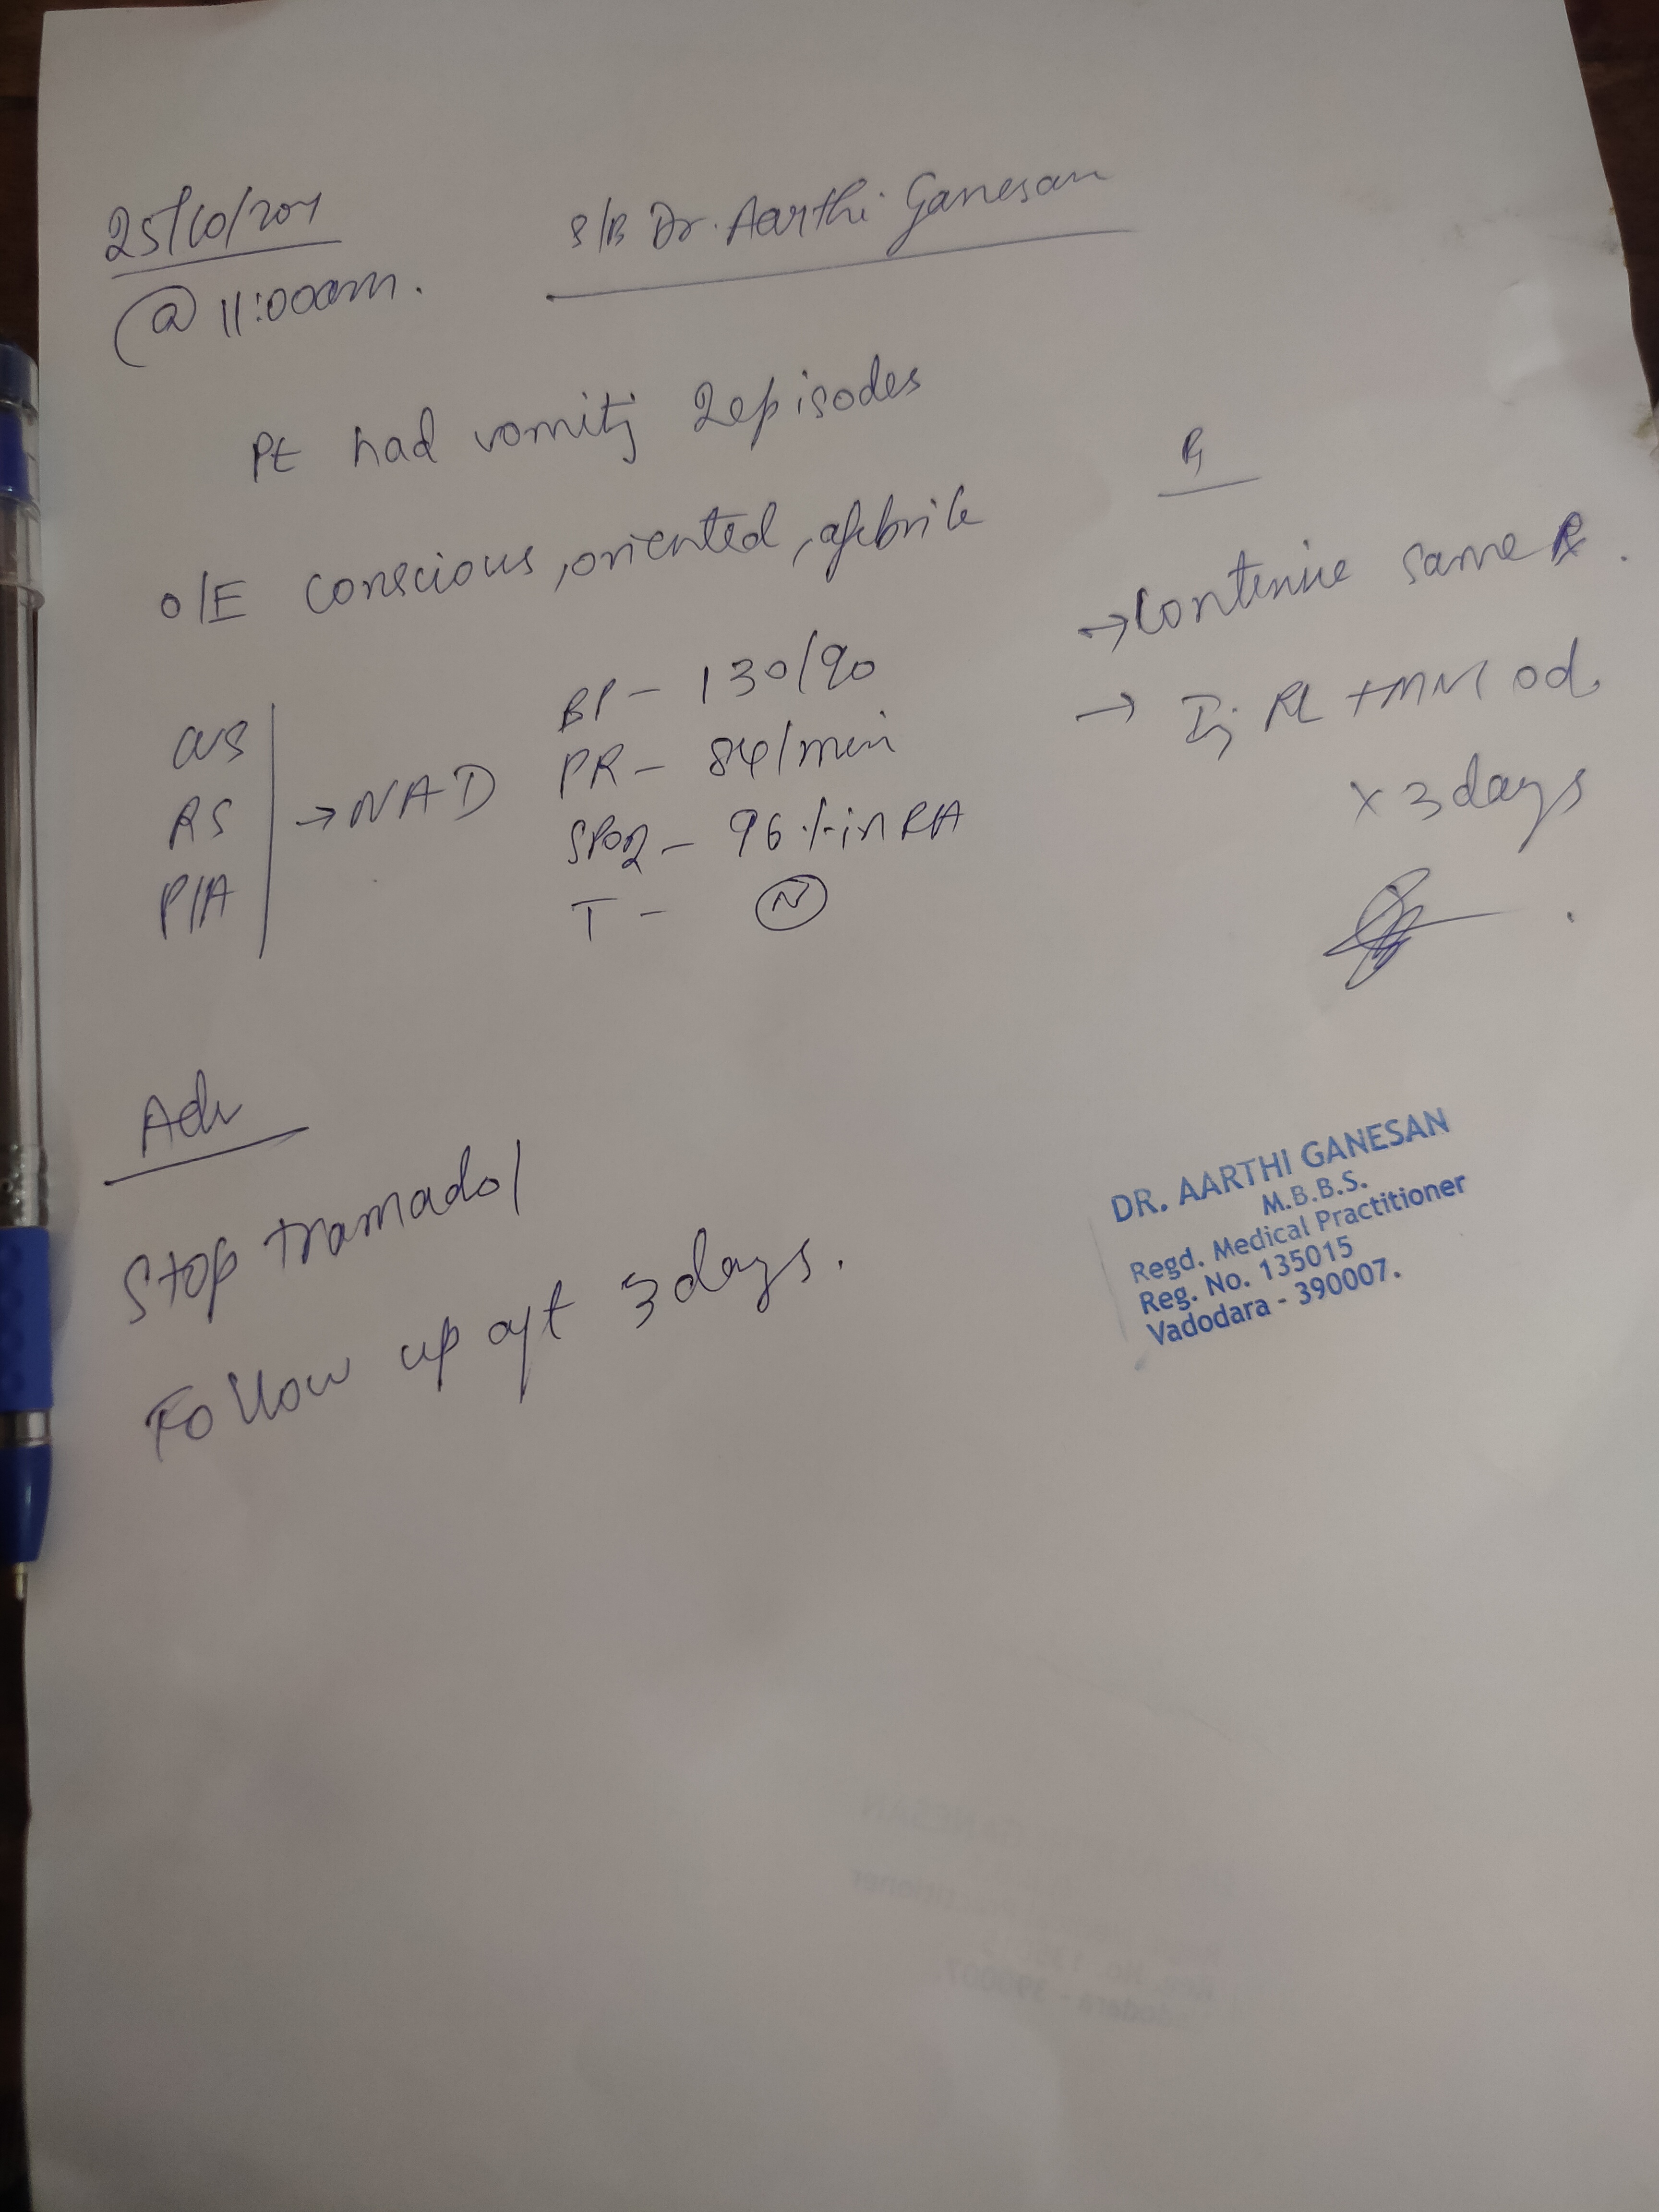 25/10/2021
@ 11:00am.
S/B Dr. Aarthi Ganesan
Pt had vomiting 2 episodes
O/E conscious, oriented, afebrile
CVS
RS
P/A
→ NAD
BP - 130/90
PR - 84/min
SPO2 - 96% in RA
T - N
Rx
→ Continue same Rx.
→ Inj RL + MVI od.
x 3 days
Adv
Stop tramadol
Follow up aft 3 days.
DR. AARTHI GANESAN
M.B.B.S.
Regd. Medical Practitioner
Reg. No. 135015
Vadodara - 390007.